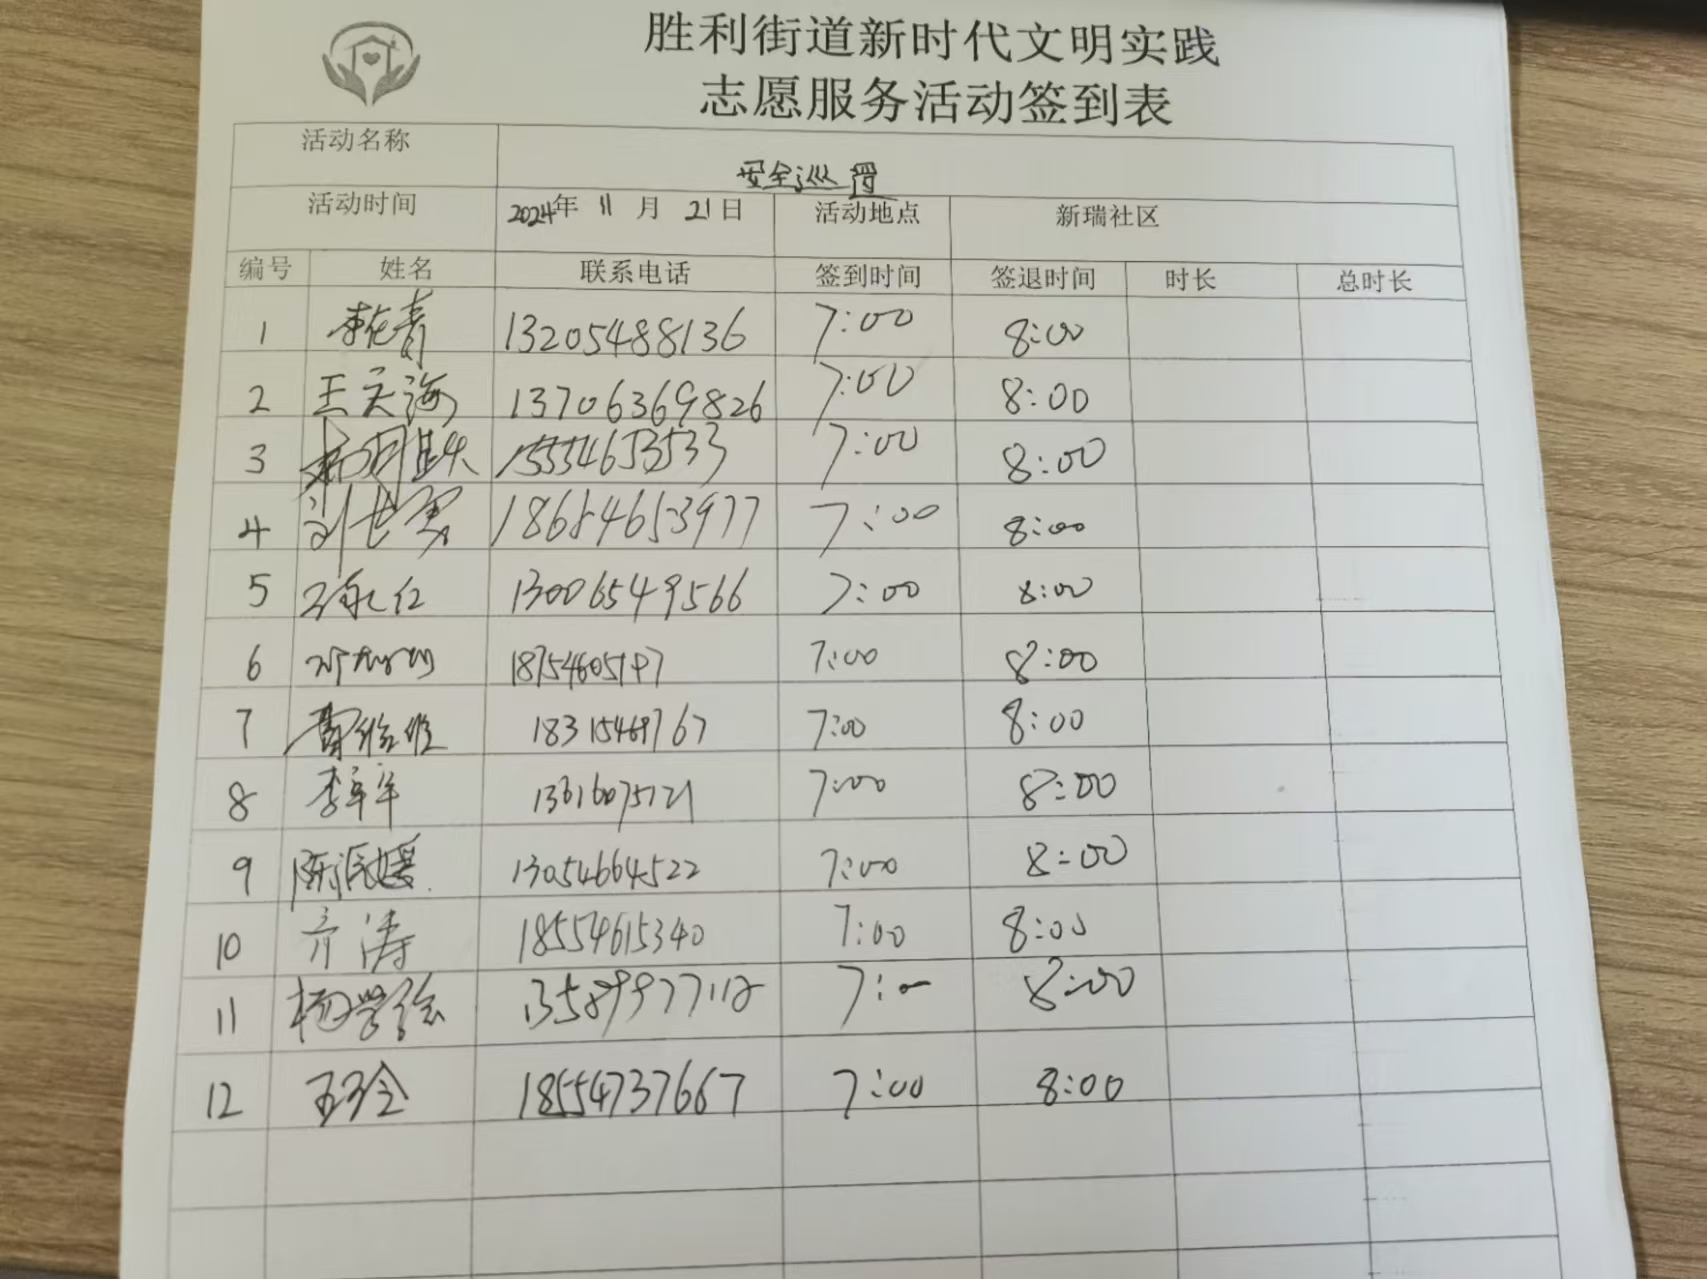 胜利街道新时代文明实践
志愿服务活动签到表
活动名称 安全巡
活动时间 2024年 11 月 21日 活动地点 新瑞社区
编号 姓名 联系电话 签到时间 签退时间 时长 总时长
1 13205488136 7:00 8:00
2 王天海 13706369826 7:00 8:00
3 15554653533 7:00 8:00
4 18684653977 7:00 8:00
5 13006549566 7:00 8:00
6 7:00 8:00
7 7:00 8:00
8 7:00 8:00
9 13054664522 7:00 8:00
10 齐涛 18554615340 7:00 8:00
11 7:00 8:00
12 18554737667 7:00 8:00